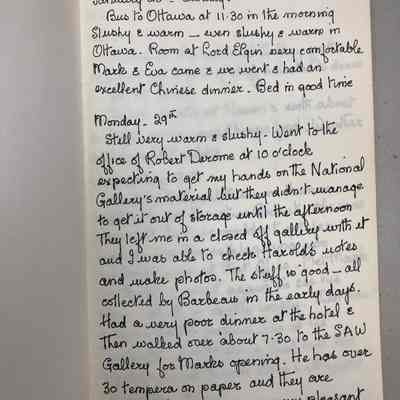 Bus to Ottawa at 11.30 in the morning
Slushy & warm — even slushy & warm in
Ottawa. Room at Lord Elgin very comfortable
Mark & Eva came & we went & had an
excellent Chinese dinner. Bed in good time
Monday - 29th
Still very warm & slushy. Went to the
office of Robert Derome at 10 o'clock
expecting to get my hands on the National
Gallery's material but they didn't manage
to get it out of storage until the afternoon
They left me in a closed off gallery with it
and I was able to check Harold's notes
and make photos. The stuff is good — all
collected by Barbeau in the early days.
Had a very poor dinner at the hotel &
Then walked over about 7.30 to the SAW
Gallery for Marks opening. He has over
30 tempera on paper and they are
pleasant